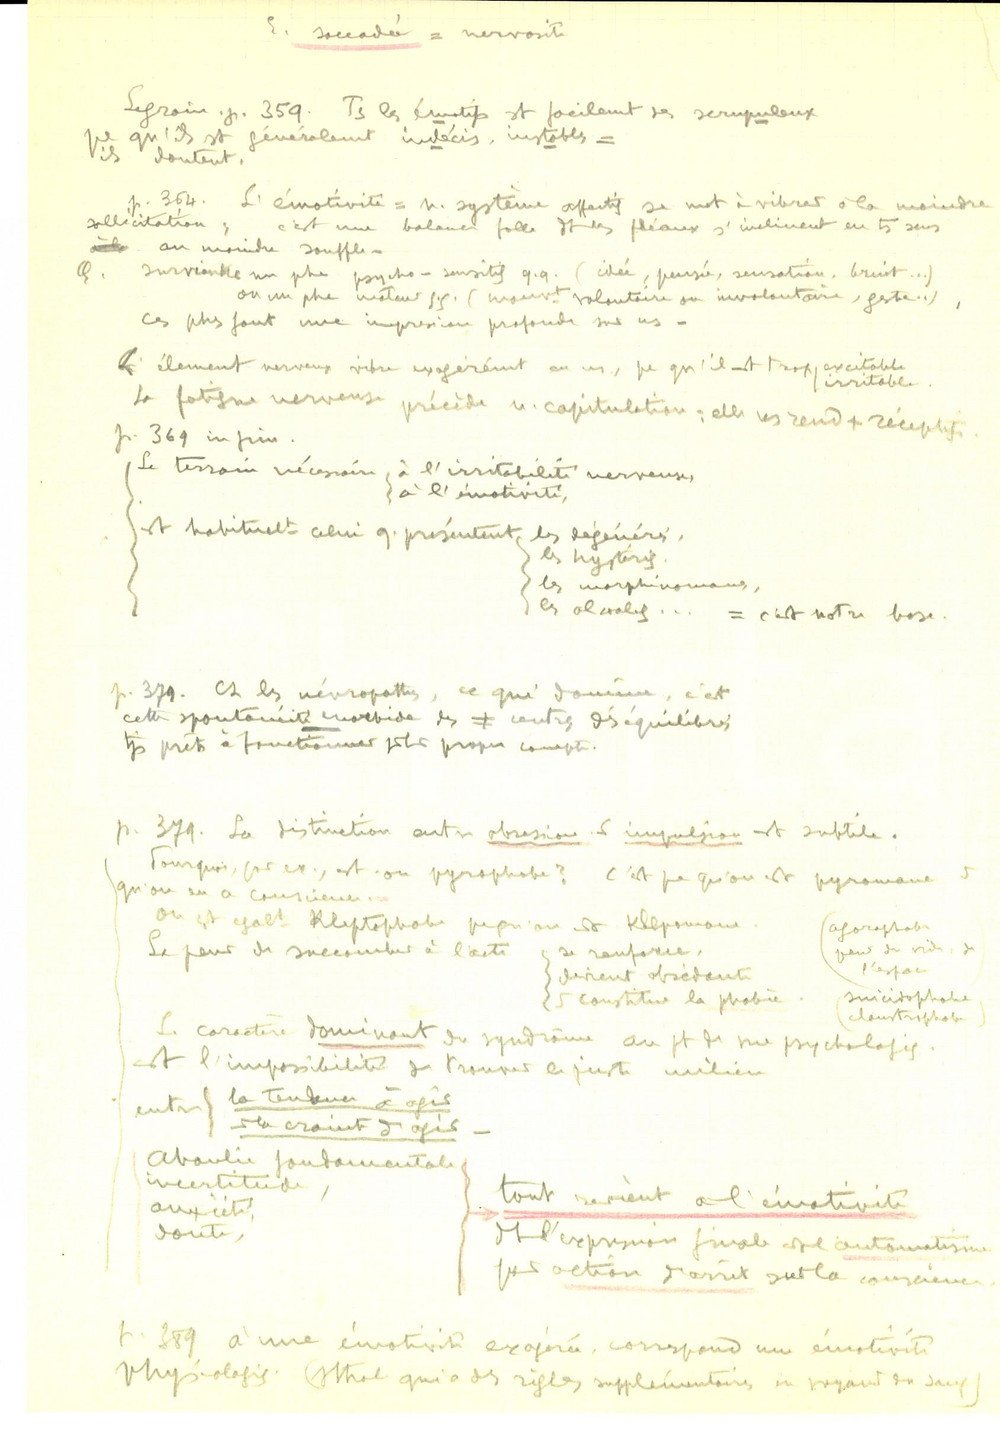 E. saccadée = nervosité
Legrain. p. 359. Ts les émotifs st facilemt des scrupuleux
pce qu'ils st généralemt indécis, instables =
ils doutent.
p. 364. L'émotivité = n. système affectif se met à vibrer à la moindre
sollicitation ; c'est une balance folle dt les fléaux s'inclinent en ts sens
au moindre souffle -
Q. survienne un phe psycho-sensitif q.q. (idée, pensée, sensation, bruit...)
ou un phe moteur q.q. (mouvt volontaire ou involontaire, geste...),
ces phes font une impression profonde sur ns -
L'élément nerveux vibre exagérémt en ns, pce qu'il est trop excitable
irritable.
La fatigue nerveuse précède n. capitulation ; elle ns rend + réceptifs.
p. 369 in fine.
Le terrain nécessaire à l'irritabilité nerveuse,
à l'émotivité,
est habituellt celui q. présentent les dégénérés,
les hystériq.
les morphinomanes,
les alcooliq... = c'est notre base.
p. 379. Ch les névropathes, ce qui domine, c'est
cette spontanéité morbide des ≠ centres déséquilibrés
tjs prêts à fonctionner pr lr propre compte.
p. 379. La distinction entre obsession & impulsion est subtile.
Pourquoi, par ex., est-on pyrophobe ? C'est pce qu'on est pyromane &
qu'on en a conscience
On est égalt Kleptophobe pcequ'on est Kleptomane.
(agoraphobe
peur du vide, de
l'espace
La peur de succomber à l'acte se renforce,
devient obsédante
& constitue la phobie.
(suicidophobe
claustrophobe)
Le caractère dominant du syndrôme au pt de vue psychologiq.
est l'impossibilité de trouver le juste milieu
entre la tendance à agir
& la crainte d'agir -
Aboulie fondamentale
incertitude,
anxiété,
doute,
tout revient à l'émotivité
dt l'expression finale est l'automatisme
par action d'arrêt sur la conscience.
p. 389 à une émotivité exagérée, correspond une émotivité
physiologiq. (qui a des règles supplémentaires en voyant du sang)